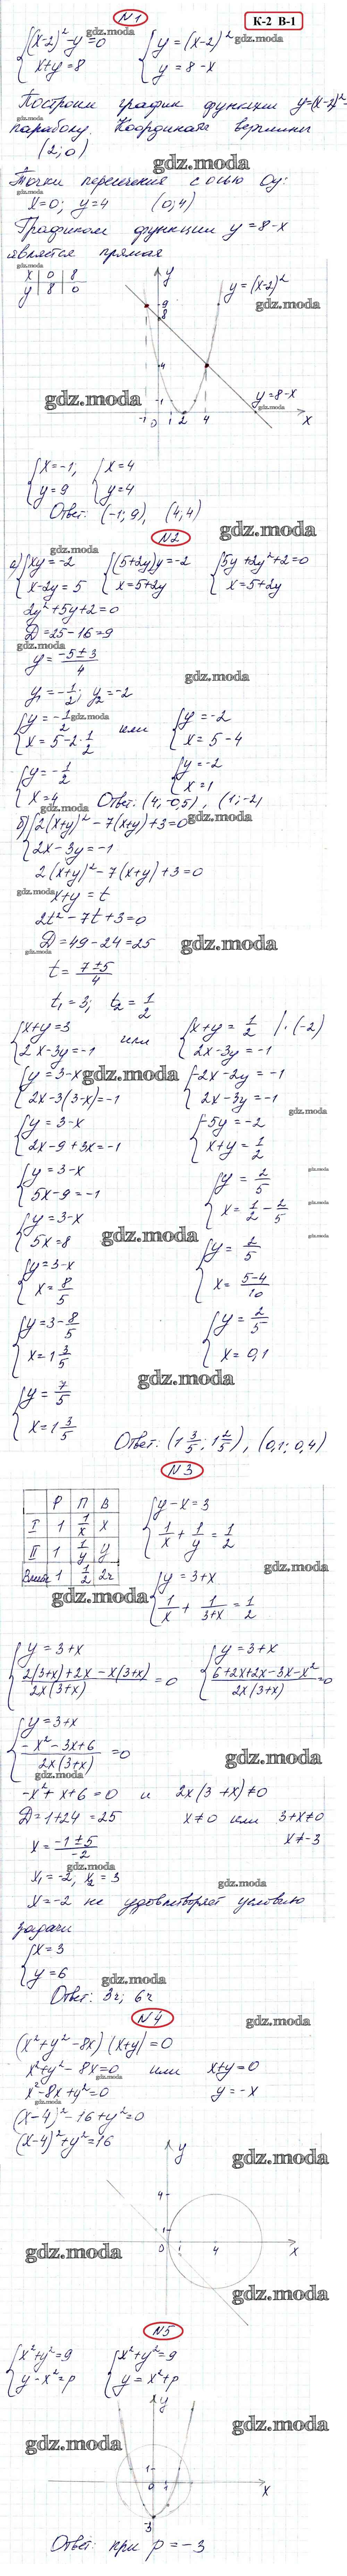 N1
К-2 В-1
{(x-2)² - y = 0
x+y = 8
{y = (x-2)²
y = 8-x
gdz.moda
Построим график функции y=(x-2)² -
параболу. Координата вершины
(2; 0)
gdz.moda
Точки пересечения с осью Oy:
x=0; y=4 (0; 4)
Графиком функции y = 8-x
является прямая
x 0 8
y 8 0
y
y = (x-2)²
9
8
4
1
-1 0 1 2 4
y = 8-x
x
gdz.moda
{x = -1;
y = 9
{x = 4
y = 4
Ответ: (-1; 9), (4; 4)
gdz.moda
N2
а) {xy = -2
x-2y = 5
{(5+2y)y = -2
x = 5+2y
{5y + 2y² + 2 = 0
x = 5+2y
2y² + 5y + 2 = 0
D = 25 - 16 = 9
y = (-5±3)/4
gdz.moda
y₁ = -1/2; y₂ = -2
{y = -1/2
x = 5 - 2·1/2
или
{y = -2
x = 5-4
{y = -1/2
x = 4
{y = -2
x = 1
Ответ: (4; -0,5), (1; -2)
б) {2(x+y)² - 7(x+y) + 3 = 0
2x - 3y = -1
gdz.moda
2(x+y)² - 7(x+y) + 3 = 0
x+y = t
2t² - 7t + 3 = 0
D = 49 - 24 = 25
gdz.moda
t = (7±5)/4
t₁ = 3; t₂ = 1/2
{x+y = 3
2x-3y = -1
или
{x+y = 1/2 /·(-2)
2x-3y = -1
{y = 3-x
2x-3(3-x) = -1
gdz.moda
{-2x-2y = -1
2x-3y = -1
{y = 3-x
2x-9+3x = -1
{-5y = -2
x+y = 1/2
{y = 3-x
5x-9 = -1
{y = 2/5
x = 1/2 - 2/5
{y = 3-x
5x = 8
gdz.moda
{y = 2/5
x = (5-4)/10
{y = 3-x
x = 8/5
{y = 3 - 8/5
x = 1 3/5
{y = 2/5
x = 0,1
gdz.moda
{y = 7/5
x = 1 3/5
Ответ: (1 3/5; 1 2/5), (0,1; 0,4)
N3
Р П В
I 1 1/x x
II 1 1/y y
Вместе 1 1/2 2ч
{y-x = 3
1/x + 1/y = 1/2
gdz.moda
{y = 3+x
1/x + 1/(3+x) = 1/2
{y = 3+x
(2(3+x)+2x-x(3+x))/(2x(3+x)) = 0
{y = 3+x
(6+2x+2x-3x-x²)/(2x(3+x)) = 0
{y = 3+x
(-x²-3x+6)/(2x(3+x)) = 0
gdz.moda
-x² + x + 6 = 0 и 2x(3+x) ≠ 0
D = 1+24 = 25 x ≠ 0 или 3+x ≠ 0
x = (-1±5)/-2 x ≠ -3
x₁ = -2, x₂ = 3
gdz.moda
x = -2 не удовлетворяет условию
задачи
{x = 3
y = 6
gdz.moda
Ответ: 3ч; 6ч
N4
gdz.moda
(x²+y²-8x)(x+y) = 0
x²+y²-8x = 0 или x+y = 0
x²-8x+y² = 0 y = -x
(x-4)² - 16 + y² = 0
(x-4)² + y² = 16
y
4
1
0 1 4 x
gdz.moda
N5
{x²+y² = 9
y-x² = p
{x²+y² = 9
y = x²+p
y
1
0 1
x
-3
gdz.moda
Ответ: при p = -3